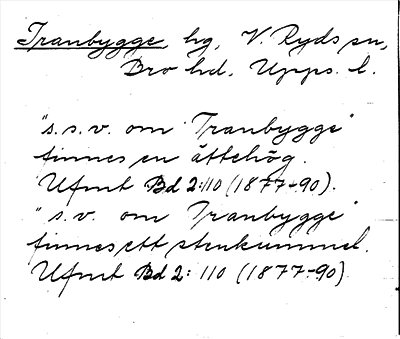 Tranbygge, hg, V. Ryds sn,
Bro hd, Upps. l.
"s.s.v. om Tranbygge"
finnes en ättehög.
Ufmt Bd 2:110 (1877-90).
"s.v. om Tranbygge"
finnes ett stenkummel.
Ufmt Bd 2: 110 (1877-90)